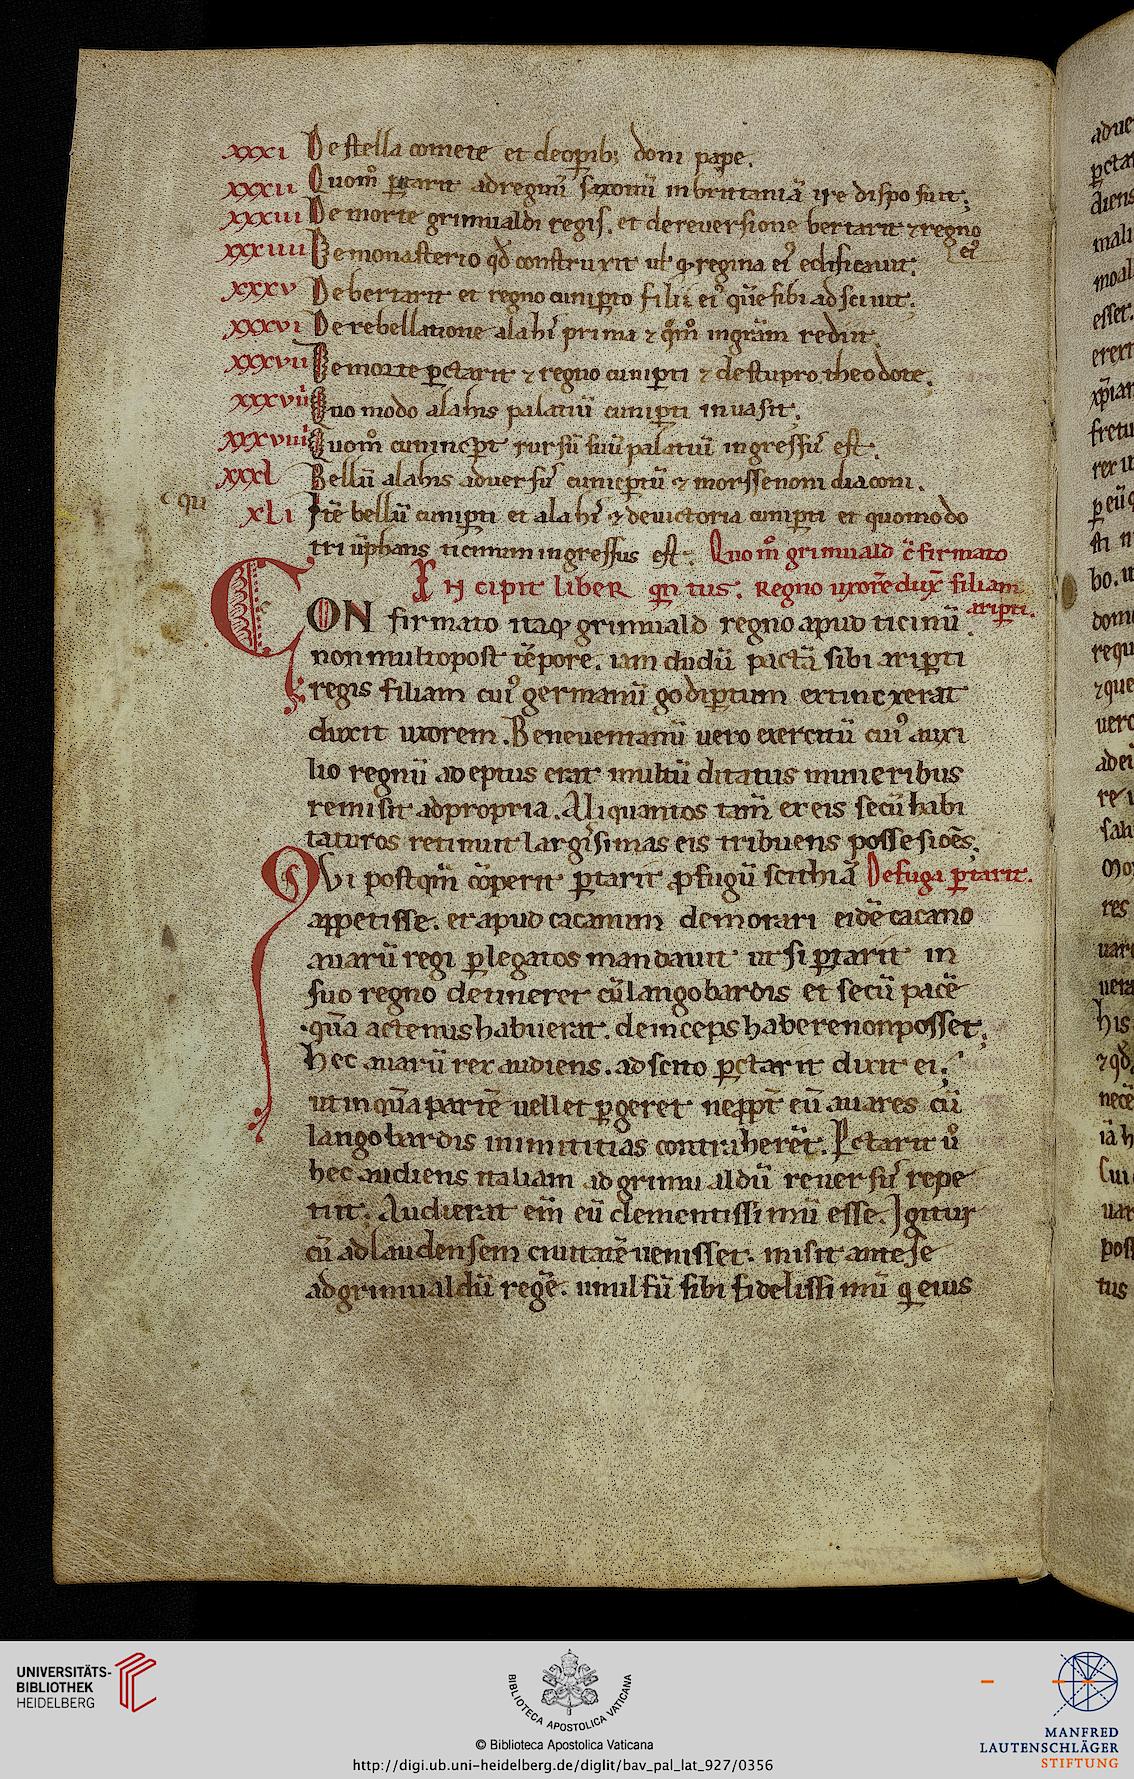 xxxi De stella comete et deoꝑib; doni pape.
xxxii Quom̊ ꝑtarit adregnū saxonū inbrittaniā ire dispo suit;
xxxiii De morte grimualdi regis. et dereuersione bertarit ⁊ regno
ei᾽
xxxiiii De monasterio qđ construxit ut ꝙ regina ei᾽ edificauit;
xxxv De bertarit et regno cuniꝑto filii ei᾽ quē sibi adsciuit;
xxxvi De rebellatione alahi᾽ prima ⁊ qm̊ ingrām rediit;
xxxvii De morte ꝑctarit ⁊ regno cuniꝑti ⁊ destupro theodote;
xxxvii Quo modo alahis palatiū cuniꝑti inuasit;
xxxviii Quom̊ cunincꝑt rursū suū palatiū ingressu᾽ est;
xxxl Bellū alahis aduersu᾽ cunicꝑtū ⁊ morssenoni diaconi.
qui
xLi Itē bellū cuniꝑti et alahi᾽ ⁊ deuictoria cuniꝑti et quomodo
triūphans ticinum ingressus est; Quom̊ grimuald c̄firmato
Incipit liber qn̄tus. Regno uxorē dux̄ filiam
ariꝑti.
CON firmato itaqꝫ grimuald regno apud ticinū
non multopost tēpore. iam dudū pactā sibi ariꝑti
regis filiam cui᾽ germanū godiꝑtum extinxerat
duxit uxorem. Beneuentanū uero exercitū cui᾽ auxi
lio regnū adeptus erat multū ditatus muneribus
remisit adpropria. Aliquantos tam̄ ex eis secū habi
taturos retinuit largi᾽simas eis tribuens possesiōes;
Qvi postqm̄ cōperit ꝑtarit ꝓfugū scithiā De fuga ꝑtarit.
appetisse. et apud cacanum demorari eidē cacano
auarū regi ꝑlegatos mandauit ut si ꝑtarit in
suo regno detineret cū langobardis et secū pacē
quā actenus habuerat. deinceps habere non posset;
hec auarū rex audiens. adscito ꝑctarit dixit ei;
ut in quā partē uellet ꝑgeret neꝓpt̄ eū auares cū
langobardis inimititias contraherēt. Pctarit ů
hec audiens italiam adgrimualdū reuersu᾽ repe
tiit. Audierat em̄ eū clementissimū esse. Igitur
cū adlaudensem ciuitatē uenisset. misit ante se
adgrimualdū regē. unulfū sibi fidelissimū q eius
© Biblioteca Apostolica Vaticana
UNIVERSITÄTS-
BIBLIOTHEK
HEIDELBERG
BIBLIOTECA APOSTOLICA VATICANA
MANFRED
LAUTENSCHLÄGER
STIFTUNG
http://digi.ub.uni-heidelberg.de/diglit/bav_pal_lat_927/0356